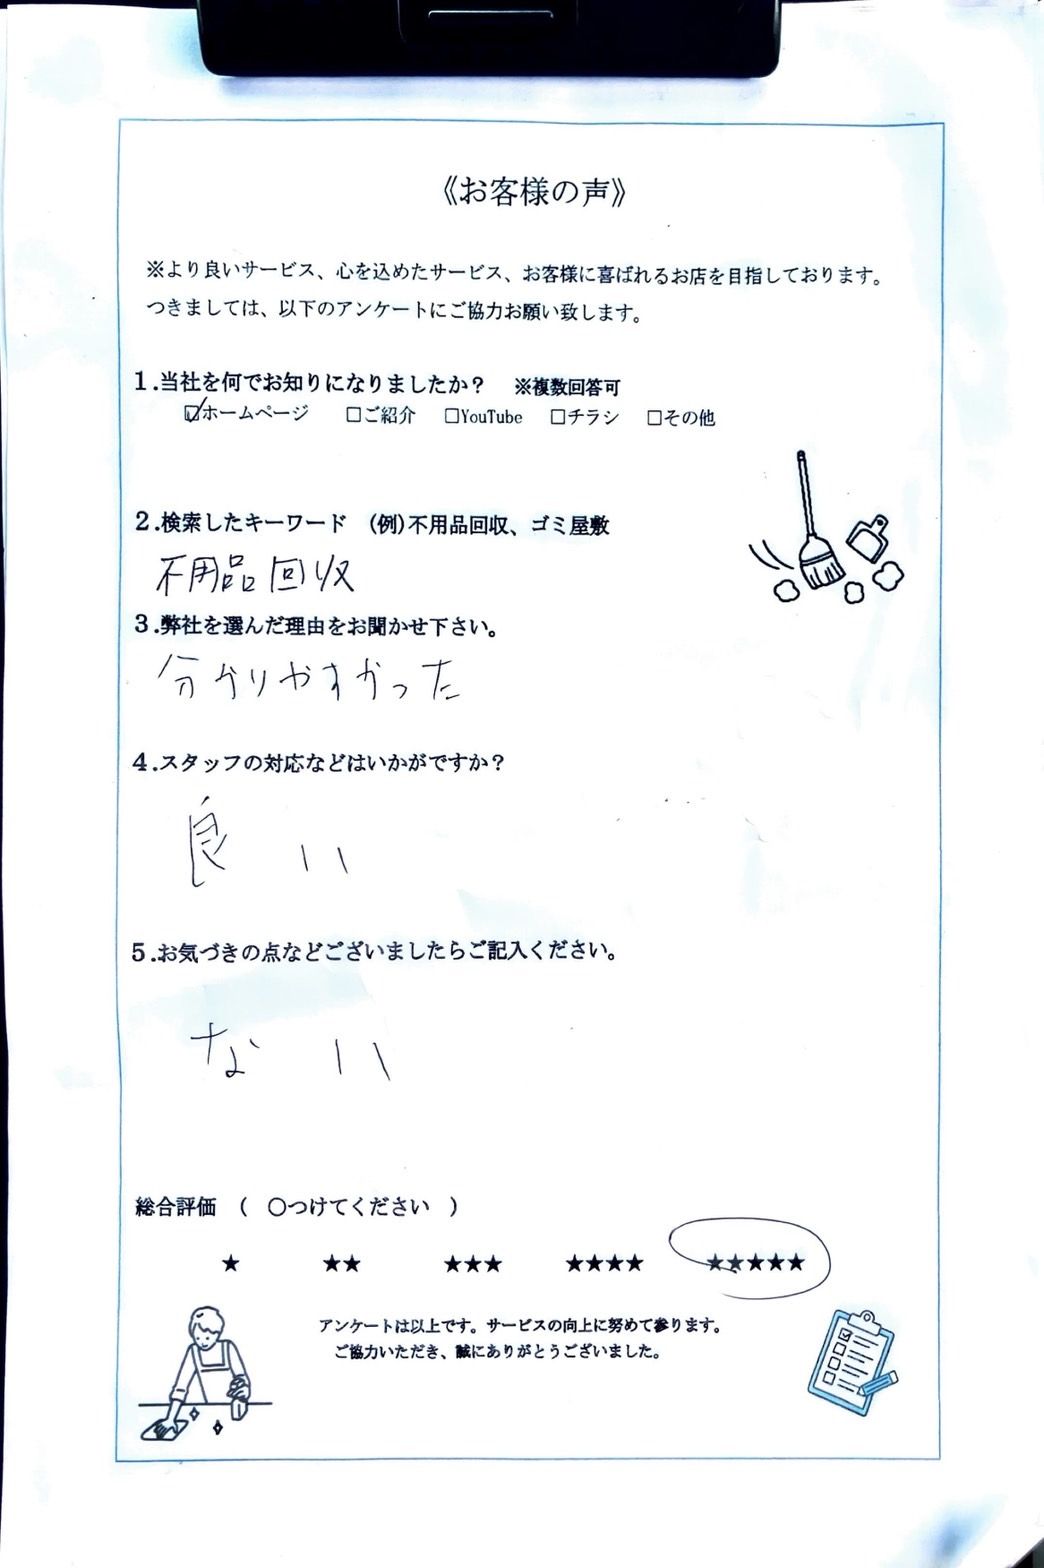 《お客様の声》
※より良いサービス、心を込めたサービス、お客様に喜ばれるお店を目指しております。
つきましては、以下のアンケートにご協力お願い致します。
1.当社を何でお知りになりましたか？　※複数回答可
☑ホームページ　□ご紹介　□YouTube　□チラシ　□その他
2.検索したキーワード　(例)不用品回収、ゴミ屋敷
不用品回収
3.弊社を選んだ理由をお聞かせ下さい。
分かりやすかった
4.スタッフの対応などはいかがですか？
良い
5.お気づきの点などございましたらご記入ください。
ない
総合評価　(　〇つけてください　)
★　★★　★★★　★★★★　★★★★★
アンケートは以上です。サービスの向上に努めて参ります。
ご協力いただき、誠にありがとうございました。